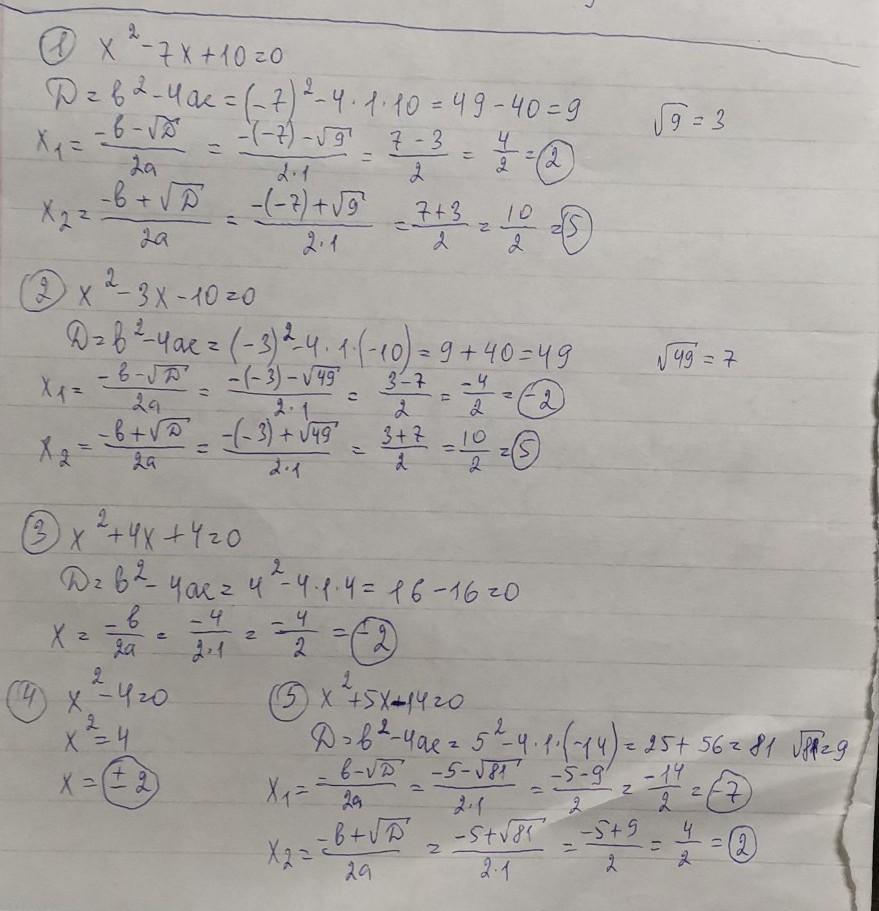 ① x² - 7x + 10 = 0
D = b² - 4ac = (-7)² - 4 · 1 · 10 = 49 - 40 = 9 √9 = 3
x₁ = (-b - √D)/2a = (-(-7) - √9)/(2·1) = (7 - 3)/2 = 4/2 = 2
x₂ = (-b + √D)/2a = (-(-7) + √9)/(2·1) = (7+3)/2 = 10/2 = 5
② x² - 3x - 10 = 0
D = b² - 4ac = (-3)² - 4 · 1 · (-10) = 9 + 40 = 49 √49 = 7
x₁ = (-b - √D)/2a = (-(-3) - √49)/(2·1) = (3-7)/2 = -4/2 = -2
x₂ = (-b + √D)/2a = (-(-3) + √49)/(2·1) = (3+7)/2 = 10/2 = 5
③ x² + 4x + 4 = 0
D = b² - 4ac = 4² - 4·1·4 = 16 - 16 = 0
x = -b/2a = -4/(2·1) = -4/2 = -2
④ x² - 4 = 0
x² = 4
x = ± 2
⑤ x² + 5x - 14 = 0
D = b² - 4ac = 5² - 4·1·(-14) = 25 + 56 = 81 √81 = 9
x₁ = (-b - √D)/2a = (-5 - √81)/(2·1) = (-5-9)/2 = -14/2 = -7
x₂ = (-b + √D)/2a = (-5 + √81)/(2·1) = (-5+9)/2 = 4/2 = 2